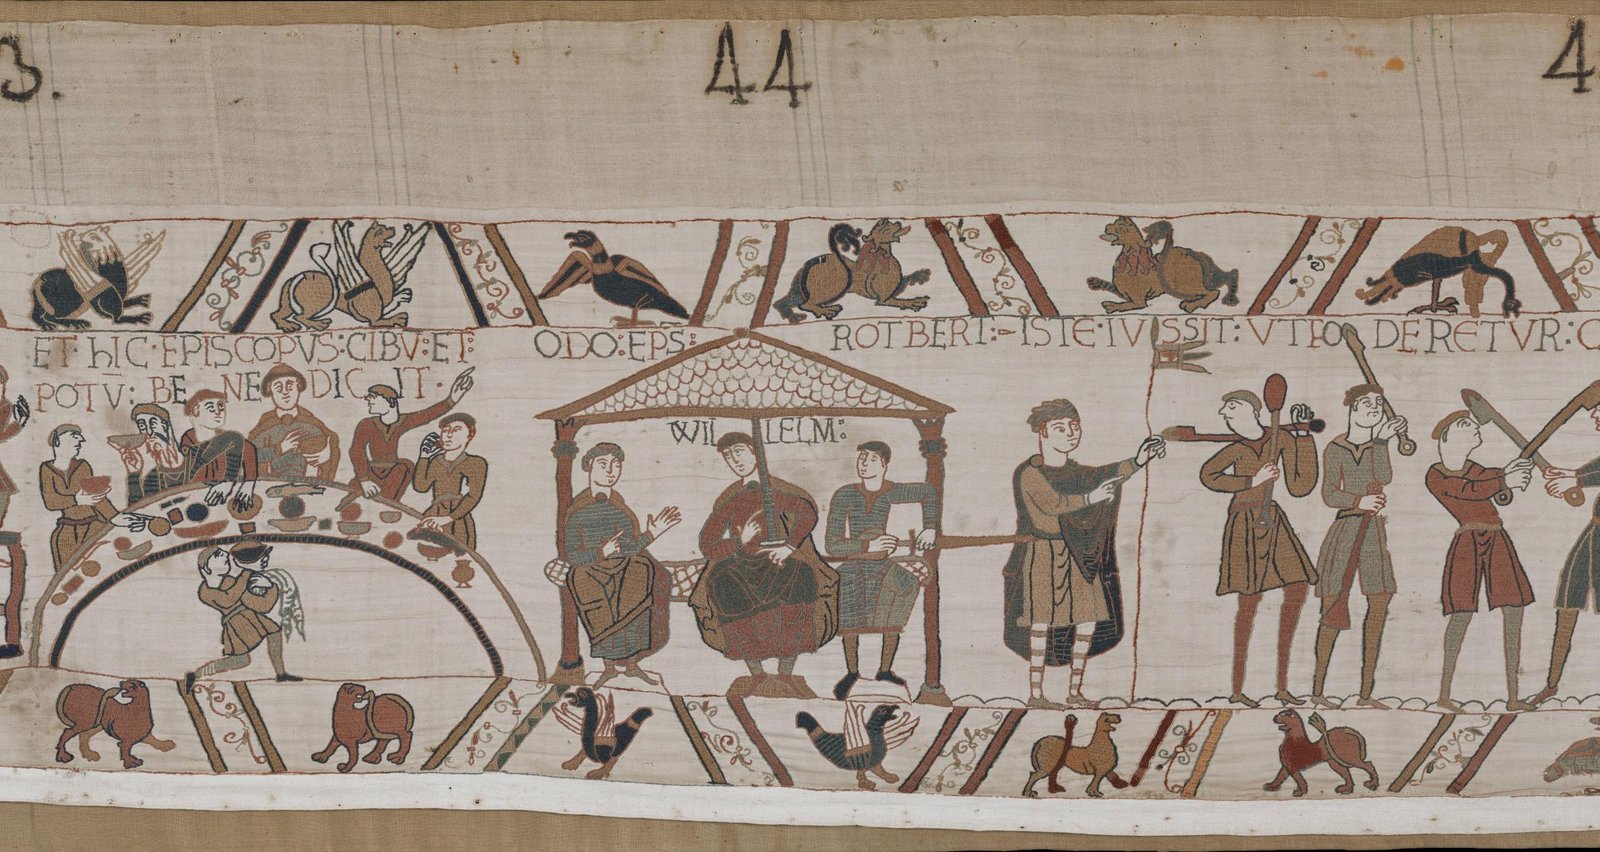 3.
44
4
ET·hIC·EPISCOPVS:CIBV̄:ET:
POTV̄: BENEDICIT·
ODO:EPS:
WILLELM:
ROTBERT:-ISTE·IVSSIT:VTFODERETVR:C